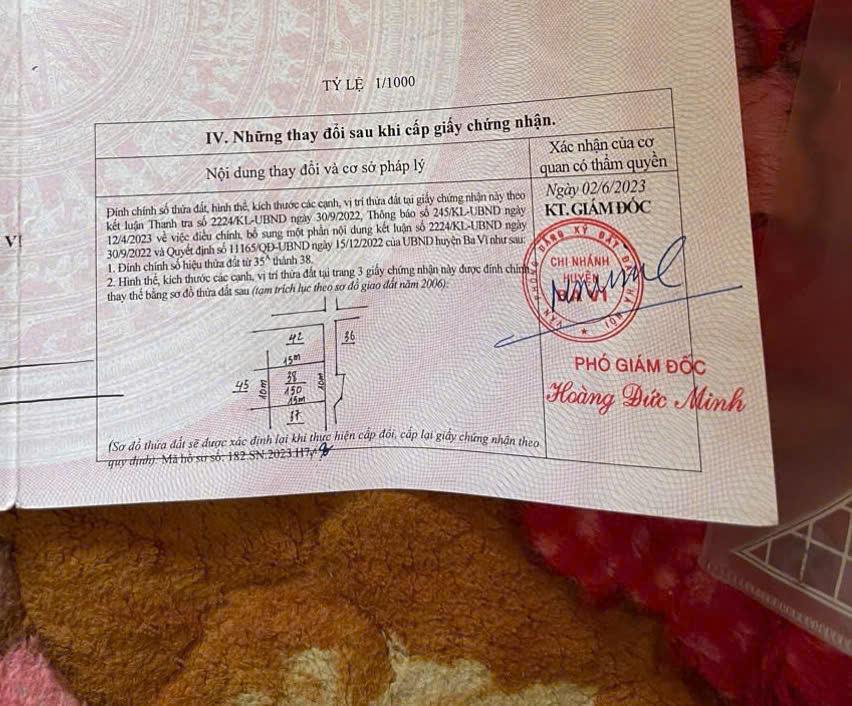 TỶ LỆ 1/1000
IV. Những thay đổi sau khi cấp giấy chứng nhận.
Nội dung thay đổi và cơ sở pháp lý
Xác nhận của cơ
quan có thẩm quyền
Đính chính số thửa đất, hình thể, kích thước các cạnh, vị trí thửa đất tại giấy chứng nhận này theo
kết luận Thanh tra số 2224/KL-UBND ngày 30/9/2022, Thông báo số 245/KL-UBND ngày
12/4/2023 về việc điều chỉnh, bổ sung một phần nội dung kết luận số 2224/KL-UBND ngày
30/9/2022 và Quyết định số 11165/QĐ-UBND ngày 15/12/2022 của UBND huyện Ba Vì như sau:
1. Đính chính số hiệu thửa đất từ 35^ thành 38.
2. Hình thể, kích thước các cạnh, vị trí thửa đất tại trang 3 giấy chứng nhận này được đính chính
thay thế bằng sơ đồ thửa đất sau (tạm trích lục theo sơ đồ giao đất năm 2006):
42
36
15m
45
10m
38
150
10m
15m
37
(Sơ đồ thửa đất sẽ được xác định lại khi thực hiện cấp đổi, cấp lại giấy chứng nhận theo
quy định). Mã hồ sơ số: 182.SN.2023
Ngày 02/6/2023
KT. GIÁM ĐỐC
VĂN PHÒNG ĐĂNG KÝ ĐẤT ĐAI HÀ NỘI
CHI NHÁNH
HUYỆN
BA VÌ
PHÓ GIÁM ĐỐC
Hoàng Đức Minh